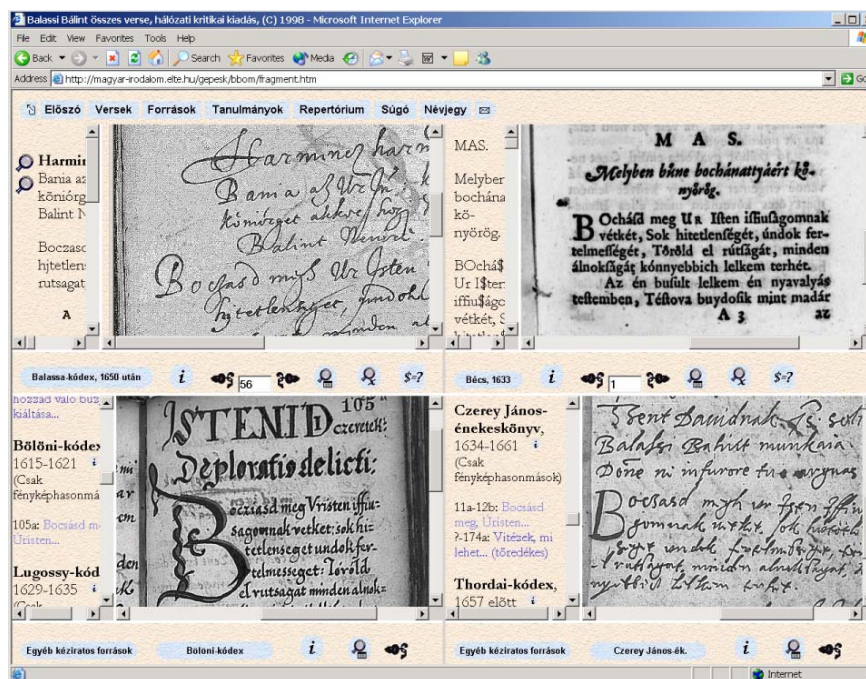 Balassi Bálint összes verse, hálózati kritikai kiadás, (C) 1998 - Microsoft Internet Explorer
File Edit View Favorites Tools Help
Back Search Favorites Media
Address http://magyar-irodalom.elte.hu/gepesk/bbom/fragment.htm Go
Előszó Versek Források Tanulmányok Repertórium Súgó Névjegy
Harmin
Bania az
köniórg
Balint N
Boczasd
hjtetlens
rutsagat
A
Harmincz harm
Bania az Ur Jn.
köniörget akkor hog
Balint Nenire.
Bocsasd megh Ur Isten
hjtetlenseget, undok
MAS.
Melyben
bochána
kö-
nyörög.
BOchá$
Ur I$ten
iffiu$ágo
vétkét, S
hitetlen$
M A S.
Melyben bűne bochánattyáért kö-
nyörög.
BOcháſd meg UR Iſten iffiuſágomnak
vétkét, Sok hitetlenſégét, úndok fer-
telmeſſégét, Töröld el rútſágát, minden
álnokſágát kónnyebbich lelkem terhét.
Az én buſult lelkem én nyavalyás
teſtemben, Téſtova buydoſik mint madár
A 3 az
Balassa-kódex, 1650 után i 56 $=?
Bécs, 1633 i 1 $=?
hozzád való buz
kiáltása...
Bölöni-kódex
1615-1621 i
(Csak
fényképhasonmá
105a: Bocsásd m
Úristen...
Lugossy-kód
1629-1635 i
(Csak
105
ISTENID
czeretek:
Deploratio delicti:
Bocziasd meg Vristen iffiu-
sagomnak vetket: sok hi-
tetlenseget undok fer-
telmesseget: Töröld
el rutsagat minden alnok-
Czerey János-
énekeskönyv,
1634-1661 i
(Csak
fényképhasonmások)
11a-12b: Bocsásd
meg, Úristen...
?-174a: Vitézek, mi
lehet... (töredékes)
Thordai-kódex,
1657 előtt i
Szent Davidnak
Balassi Balint munkaia
Dõne ni infurore tuo arguas
Bocsasd megh ur Isten Iffiu
gomnak vetket, sok hitetlen
seget undok fertelmesseget,
rutsagat, minden alnoksagat,
Egyéb kéziratos források Bölöni-kódex i
Egyéb kéziratos források Czerey János-ék. i
Internet